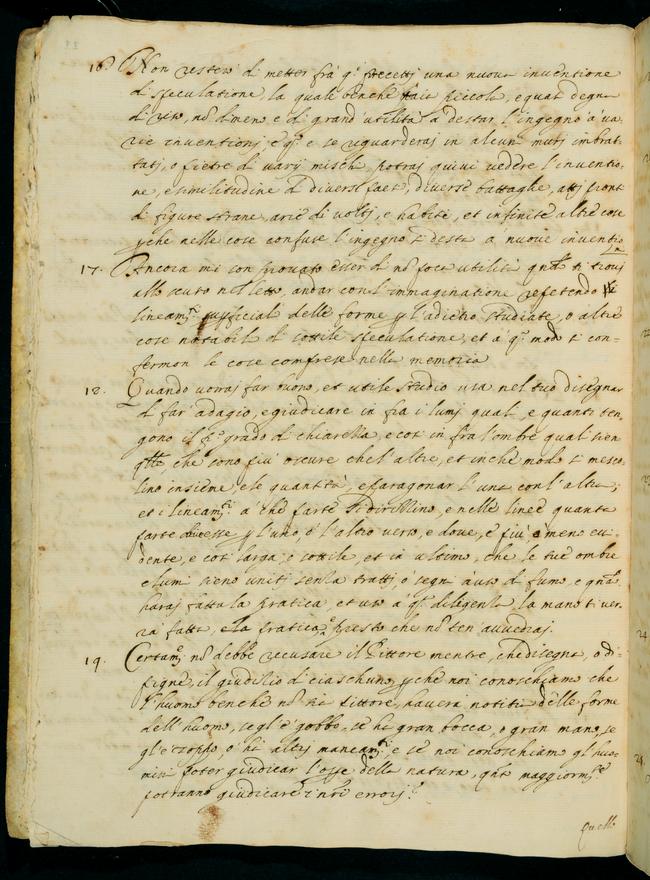 16 Non resterò di metter fra q.i precetti una nuova inventione
di speculatione, la quale benche paia piccola, e quasi degna
di riso, nõ dimeno è di grand'utilità a destar l'ingegno à va-
rie inventionj, e q.o è se riguarderaj in alcuni murj imbrat-
tatj, o pietre di varij mischi, potraj quivi vedere l'inventio-
ne, e similitudine di diversi paesi, diverse battaglie, attj pronti
di figure strane, arie di voltj, e habiti, et infinite altre cose
pche nelle cose confuse l'ingegno si desta a nuove inventio
17. Ancora mi son provato esser di nõ poca utilità qñdo ti trovj
allo scuro nel letto, andar con l'immaginatione repetendo li
lineam.ti superficiali delle forme p l'adietro studiate, o altre
cose notabili di sottile speculatione, et a q.o modo si con-
fermon le cose comprese nella memoria
18. Quando vorraj far buono, et utile studio usa nel tuo disegnar
di far adagio, e giudicare in fra i lumj quali, e quanti ten-
gono il p.o grado di chiarezza, e cosi in fra l'ombre quali sien
q̃lle che sono più oscure che l'altre, et in che modo si mesco-
lino insieme, e le quantità, e paragonar l'una con l'altra;
et i lineam.ti a che parte si dirizzino, e nelle linee quanta
parte p l'uno, ò l'altro verso, e dove, è più, o meno evi-
dente, e cosi larga, ò sottile, et in ultimo, che le tue ombre
e lumi sieno unitj senza trattj, ò segni à uso di fumo, e qñdo
haraj fatta la pratica, et uso a q.a diligenza la mano ti ver-
rà fatta, e la pratica presto che nõ ten'avvedraj.
19. Certam.te nõ debbe recusare il Pittore mentre, che disegna, o di-
pigne, il giudizio di ciaschuno, pche noi conoschiamo che
l'huomo benche nõ sia pittore, havera notitia delle forme
dell'huomo, s'egl'è gobbo, se hà gran bocca, o gran mano, se
gl'è zoppo, o hà altrj mancam.ti e se noi conoschiamo gl'huo-
mini poter giudicar l'opre della natura, qñto maggiorm.te
potranno giudicare i nr̃i errorj.
Quello